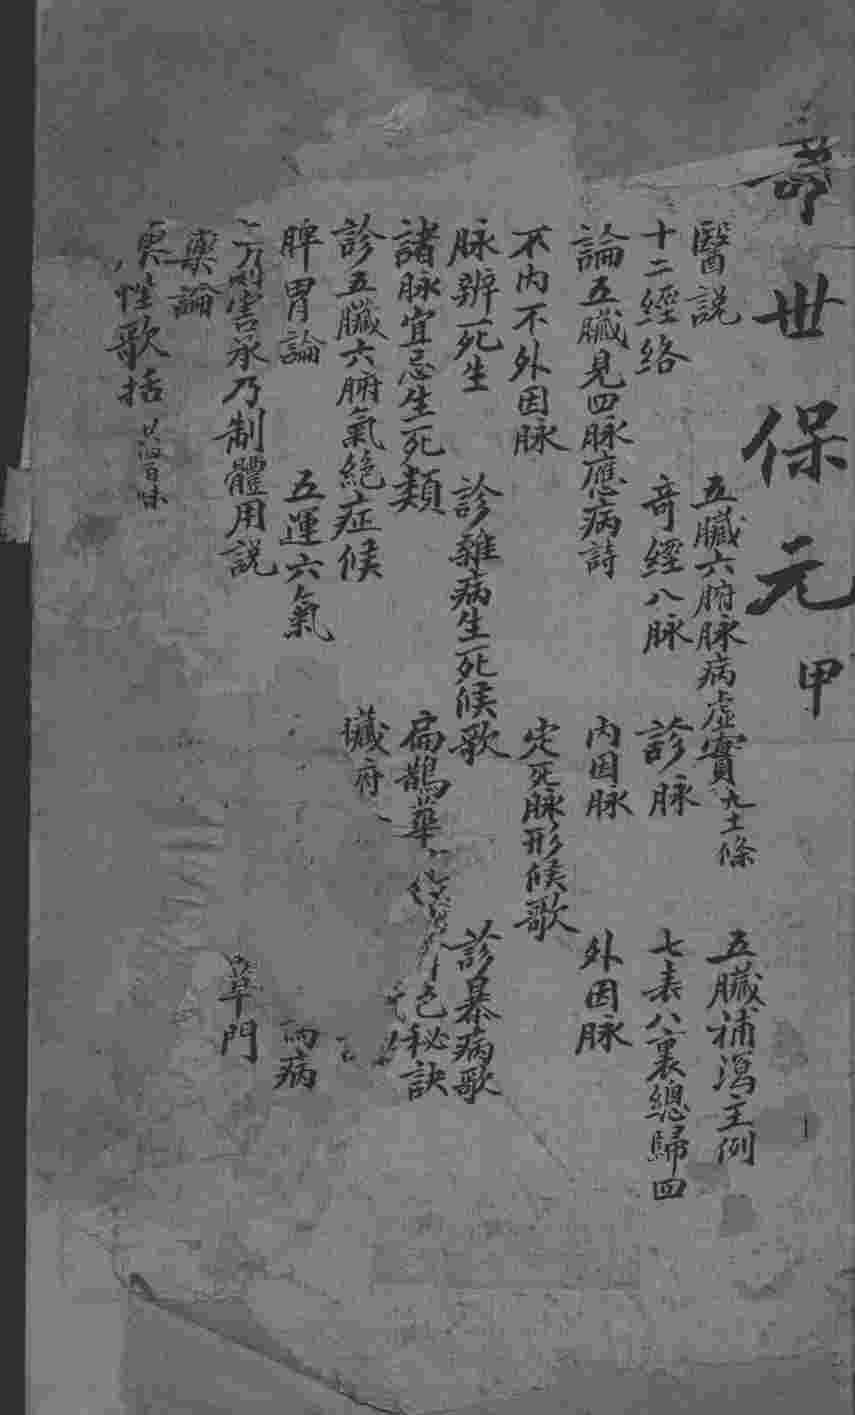 壽世保元 甲
醫説 五臟六腑脉病虛實九士條 五臟補瀉主例
十二經絡 奇經八脉 診脉 七表八裏總歸四
論五臟見四脉應病詩 內因脉 外因脉
不內不外因脉 定死脉形候歌
脉辨死生 診雜病生死候歌 診暴病歌
諸脉宜忌生死類 扁鵲華 色秘訣
診五臟六腑氣絶症候 臟府
脾胃論 五運六氣 病
害承乃制體用説 草門
藥論
藥性歌括